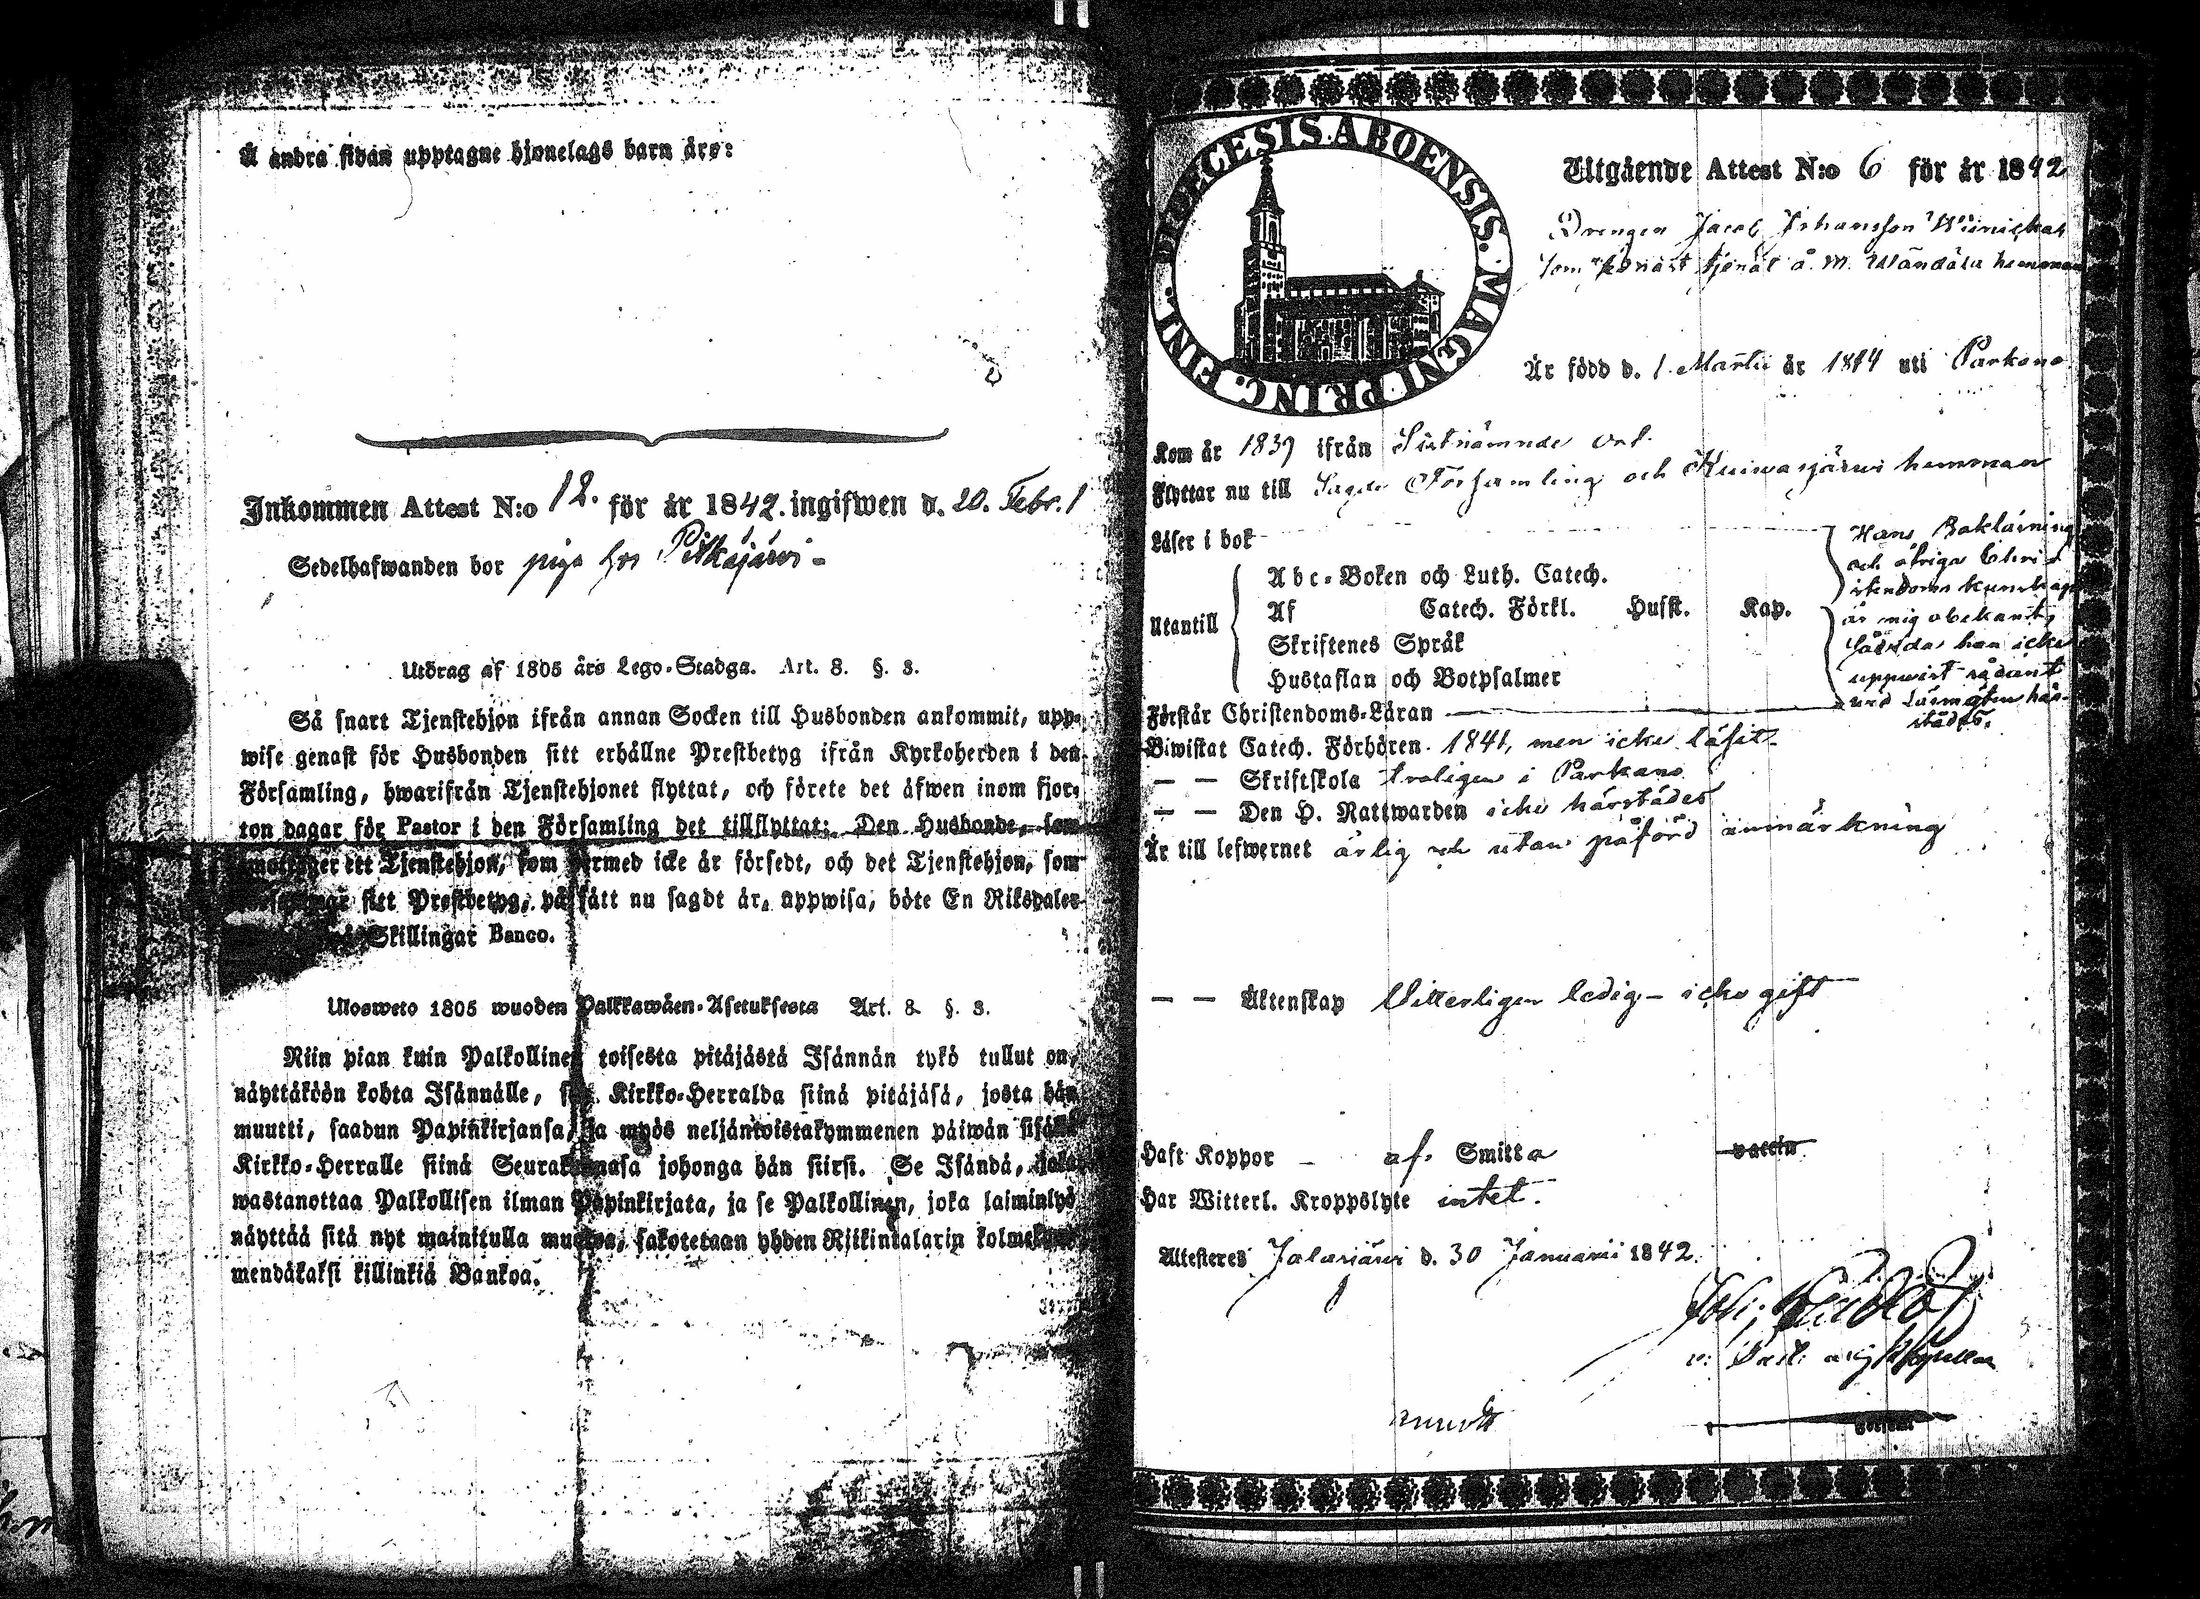 Å andra sidan upptagne hjonelags barn äro:
Inkommen Attest N:o 12. för år 1842. ingifwen d. 20. Febr.
Sedelhafwanden bor piga hos Pitkäjärvi -
Utdrag af 1805 års Lego-Stadga. Art. 8. §. 3.
Så snart Tjenstehjon ifrån annan Socken till Husbonden ankommit, upp-
wise genast för Husbonden sitt erhållne Prestbetyg ifrån Kyrkoherden i den
Församling, hwarifrån Tjenstehjonet flyttat, och förete det äfwen inom fjor-
ton dagar för Pastor i den Församling det tillflyttat: Den Husbonde, som
ett Tjenstehjon, som härmed icke är försedt, och det Tjenstehjon, som
sitt Prestbetyg, på sätt nu sagdt är, uppwisa, böte En Riksdaler
Skillingar Banco.
Ulosweto 1805 wuoden Palkkawäen-Asetuksesta Art. 8 §. 3.
Niin pian kuin Palkollinen toisesta pitäjästä Isännän tykö tullut on,
näyttäköön kohta Isännälle, sen Kirkko-Herralda siinä pitäjäsä, josta hän
muutti, saadun Papinkirjansa, ja myös neljäntoistakymmenen päiwän sisällä
Kirkko-Herralle siinä Seurakunnasa johonga hän siirsi. Se Isändä, joka
wastanottaa Palkollisen ilman Papinkirjata, ja se Palkollinen, joka laiminlyö
näyttää sitä nyt mainitulla muotoa, sakotetaan yhden Riikintalarin kolmekym-
mendäkaksi killinkiä Bankoa.
DIOECESIS ABOENSIS. MAGNI PRINC. FINL.
Utgående Attest N:o 6 för år 1842
Drengen Jacob Johansson Wiinickas
som tjenat å hemman
Är född d. 1 Martii år 1814 uti Parkano
Kom år 1839 ifrån Sistnämnde ort.
Flyttar nu till Sagde Församling och Kuiwasjärwi hemman
Läser i bok
Utantill
Abc-Boken och Luth. Catech.
Af Catech. Förkl. Husst. Kap.
Skriftenes Språk
Hustaflan och Botpsalmer
Hans Boklärning
och öfriga Chri-
stendoms kunskap
är mig obekant,
han icke
uppwist sådant
wid Läsmöten här-
städes.
Förstår Christendoms-Läran
Biwistat Catech. Förhören 1841, men icke läsit.
— — Skriftskola troligen i Parkano
— — Den H. Nattwarden icke härstädes
Är till lefwernet ärlig och utan påförd anmärkning
— — Äktenskap Vitterligen ledig - icke gift
Haft Koppor - af. Smitta vaccin
Har Witterl. Kroppslyte intet.
Attesteres Jalasjärwi d. 30 Januarii 1842.